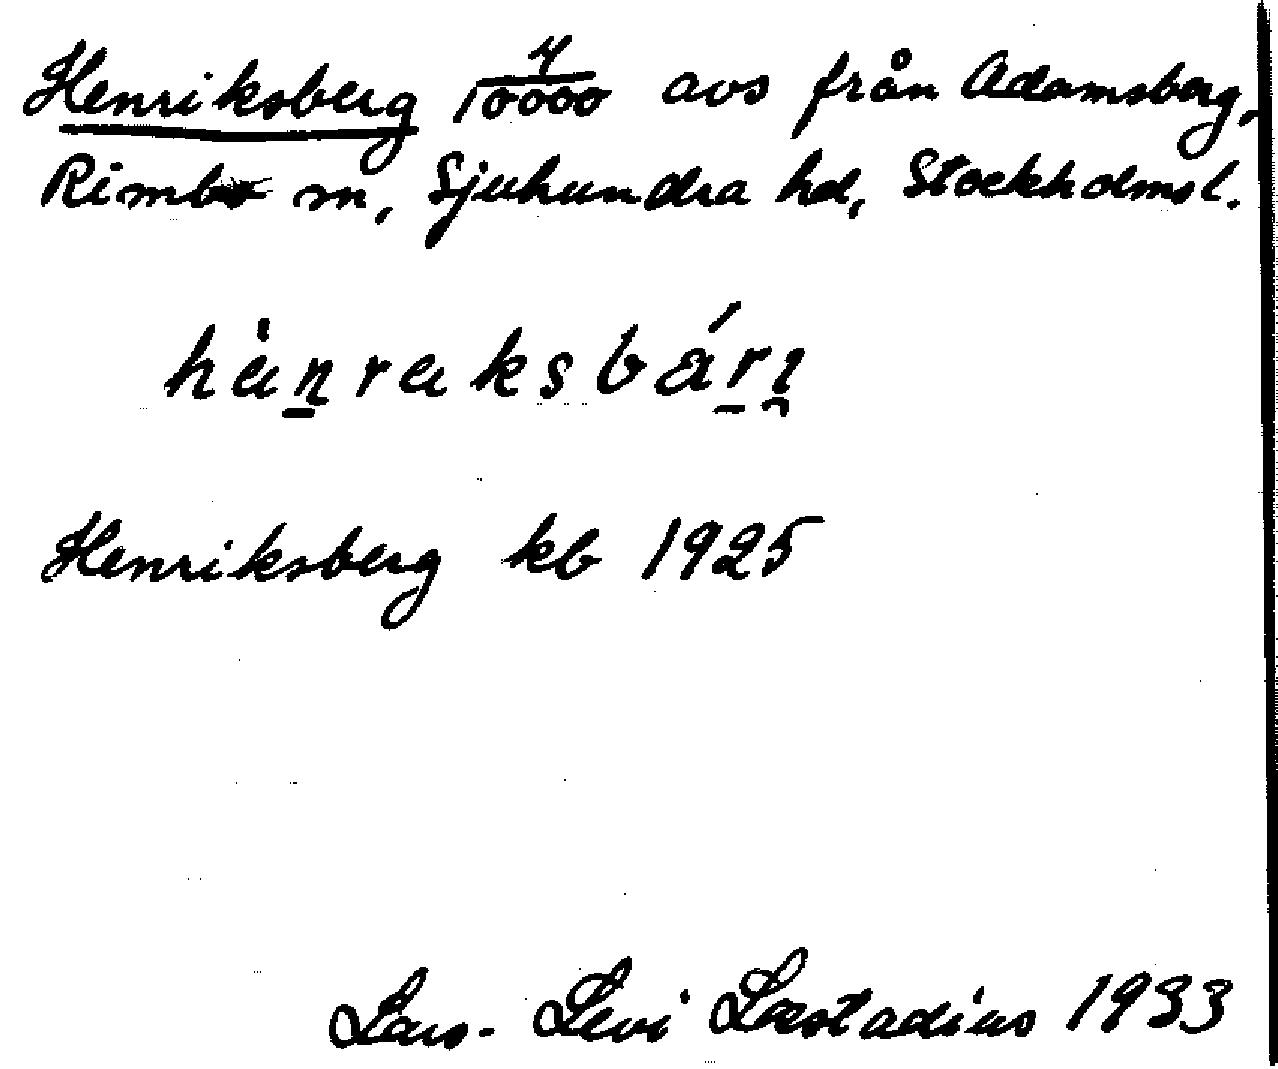 Henriksberg 4/10000 avs från Adamsberg,
Rimbo sn, Sjuhundra hd, Stockholmsl.
hànraksbárı
Henriksberg kb 1925
Lars-Levi Læstadius 1933